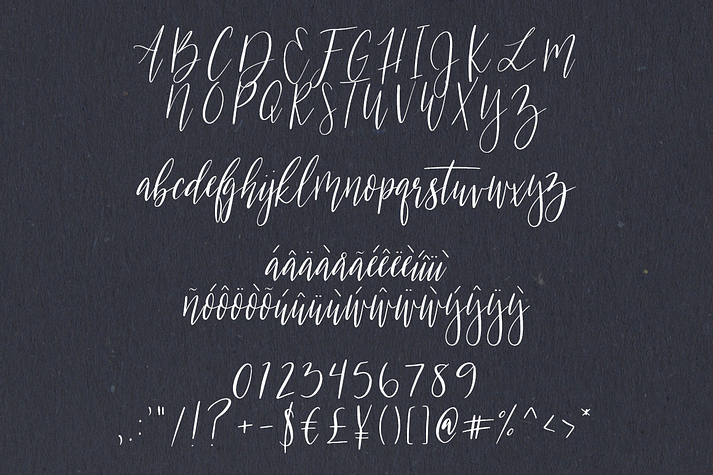 ABCDEFGHIJKLM
NOPQRSTUVWXYZ
abcdefghijklmnopqrstuvwxyz
áâäàåãéêëèíîïì
ñóôöòõúûüùẃŵẅẁýŷÿỳ
0123456789
,.:;'"/!?+-$€£¥()[]@#%^<>*